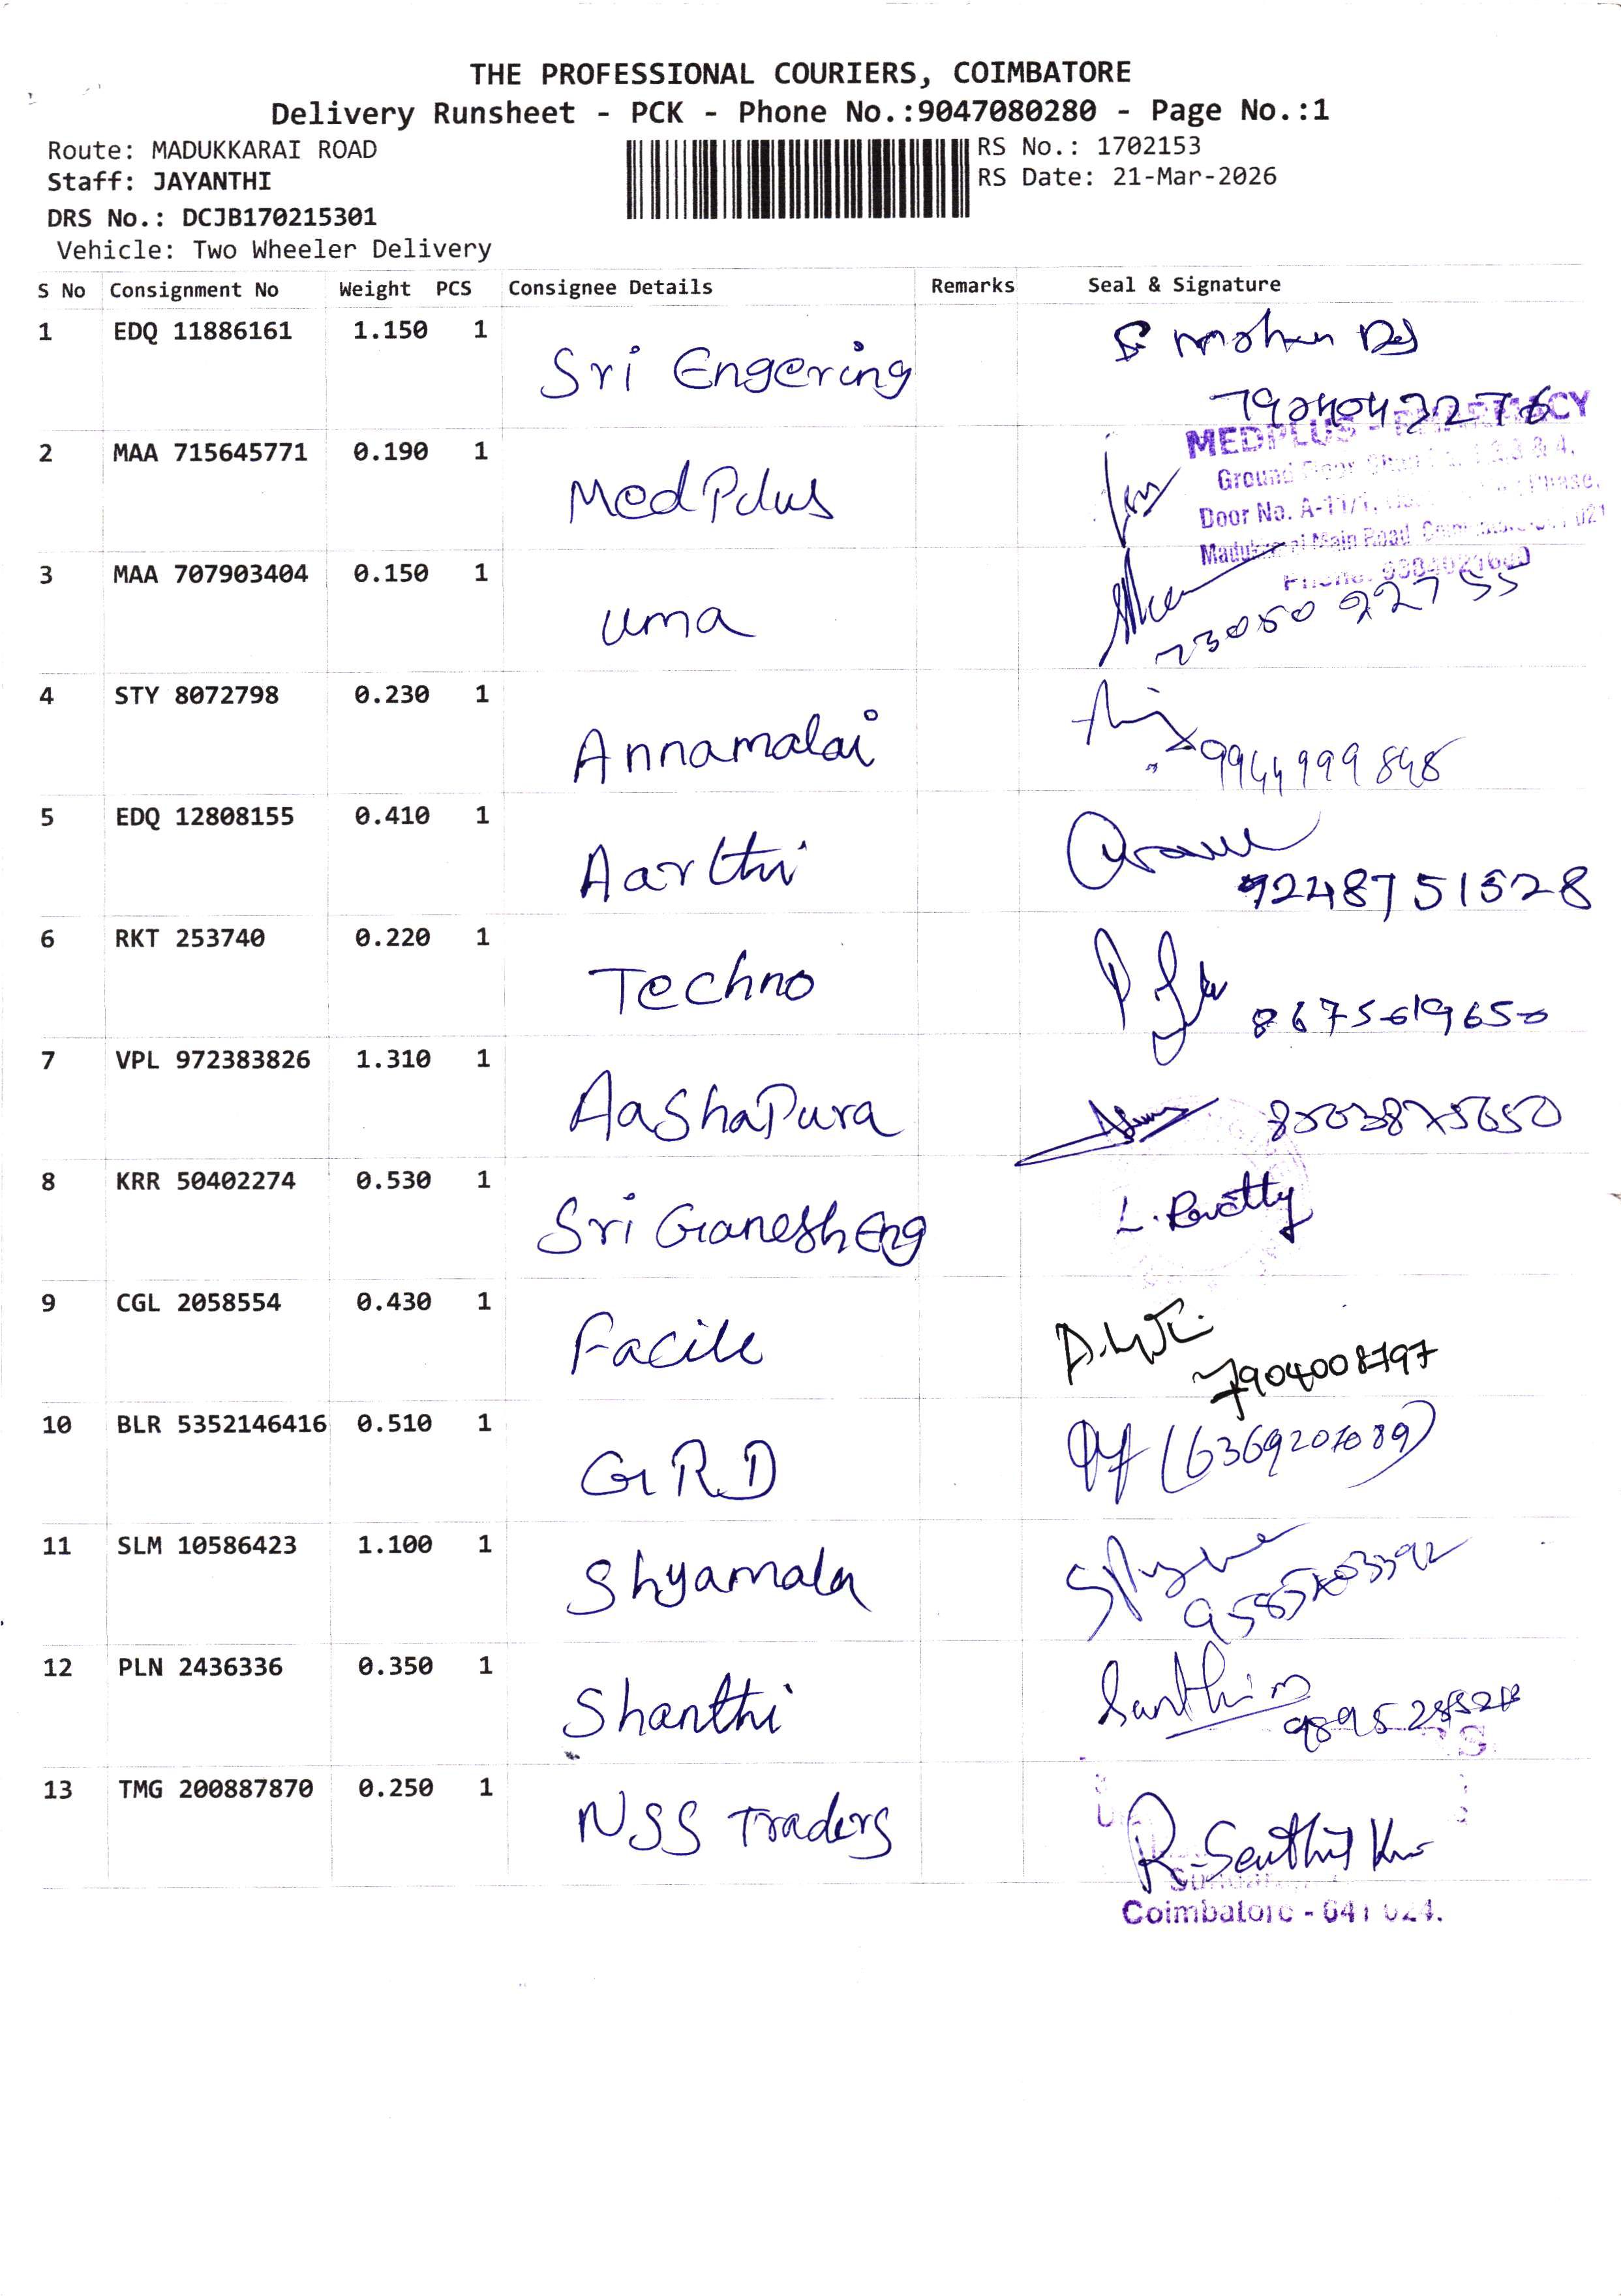 THE PROFESSIONAL COURIERS, COIMBATORE
Delivery Runsheet - PCK - Phone No.:9047080280 - Page No.:1
Route: MADUKKARAI ROAD
RS No.: 1702153
Staff: JAYANTHI
RS Date: 21-Mar-2026
DRS No.: DCJB170215301
Vehicle: Two Wheeler Delivery
S No Consignment No Weight PCS Consignee Details Remarks Seal & Signature
1 EDQ 11886161 1.150 1 Sri Engering
2 MAA 715645771 0.190 1 MedPlus
MEDPLUS
Ground
Door No. A-11/1,
Main Road
3 MAA 707903404 0.150 1 Uma
4 STY 8072798 0.230 1 Annamalai
9944999848
5 EDQ 12808155 0.410 1 Aarthi
6 RKT 253740 0.220 1 Techno
8675619650
7 VPL 972383826 1.310 1 AashaPura
8 KRR 50402274 0.530 1 Sri Ganesh Eng
9 CGL 2058554 0.430 1 Facile
7904008797
10 BLR 5352146416 0.510 1 G R D
11 SLM 10586423 1.100 1 Shyamala
12 PLN 2436336 0.350 1 Shanthi
13 TMG 200887870 0.250 1 NSS Traders
Coimbatore -